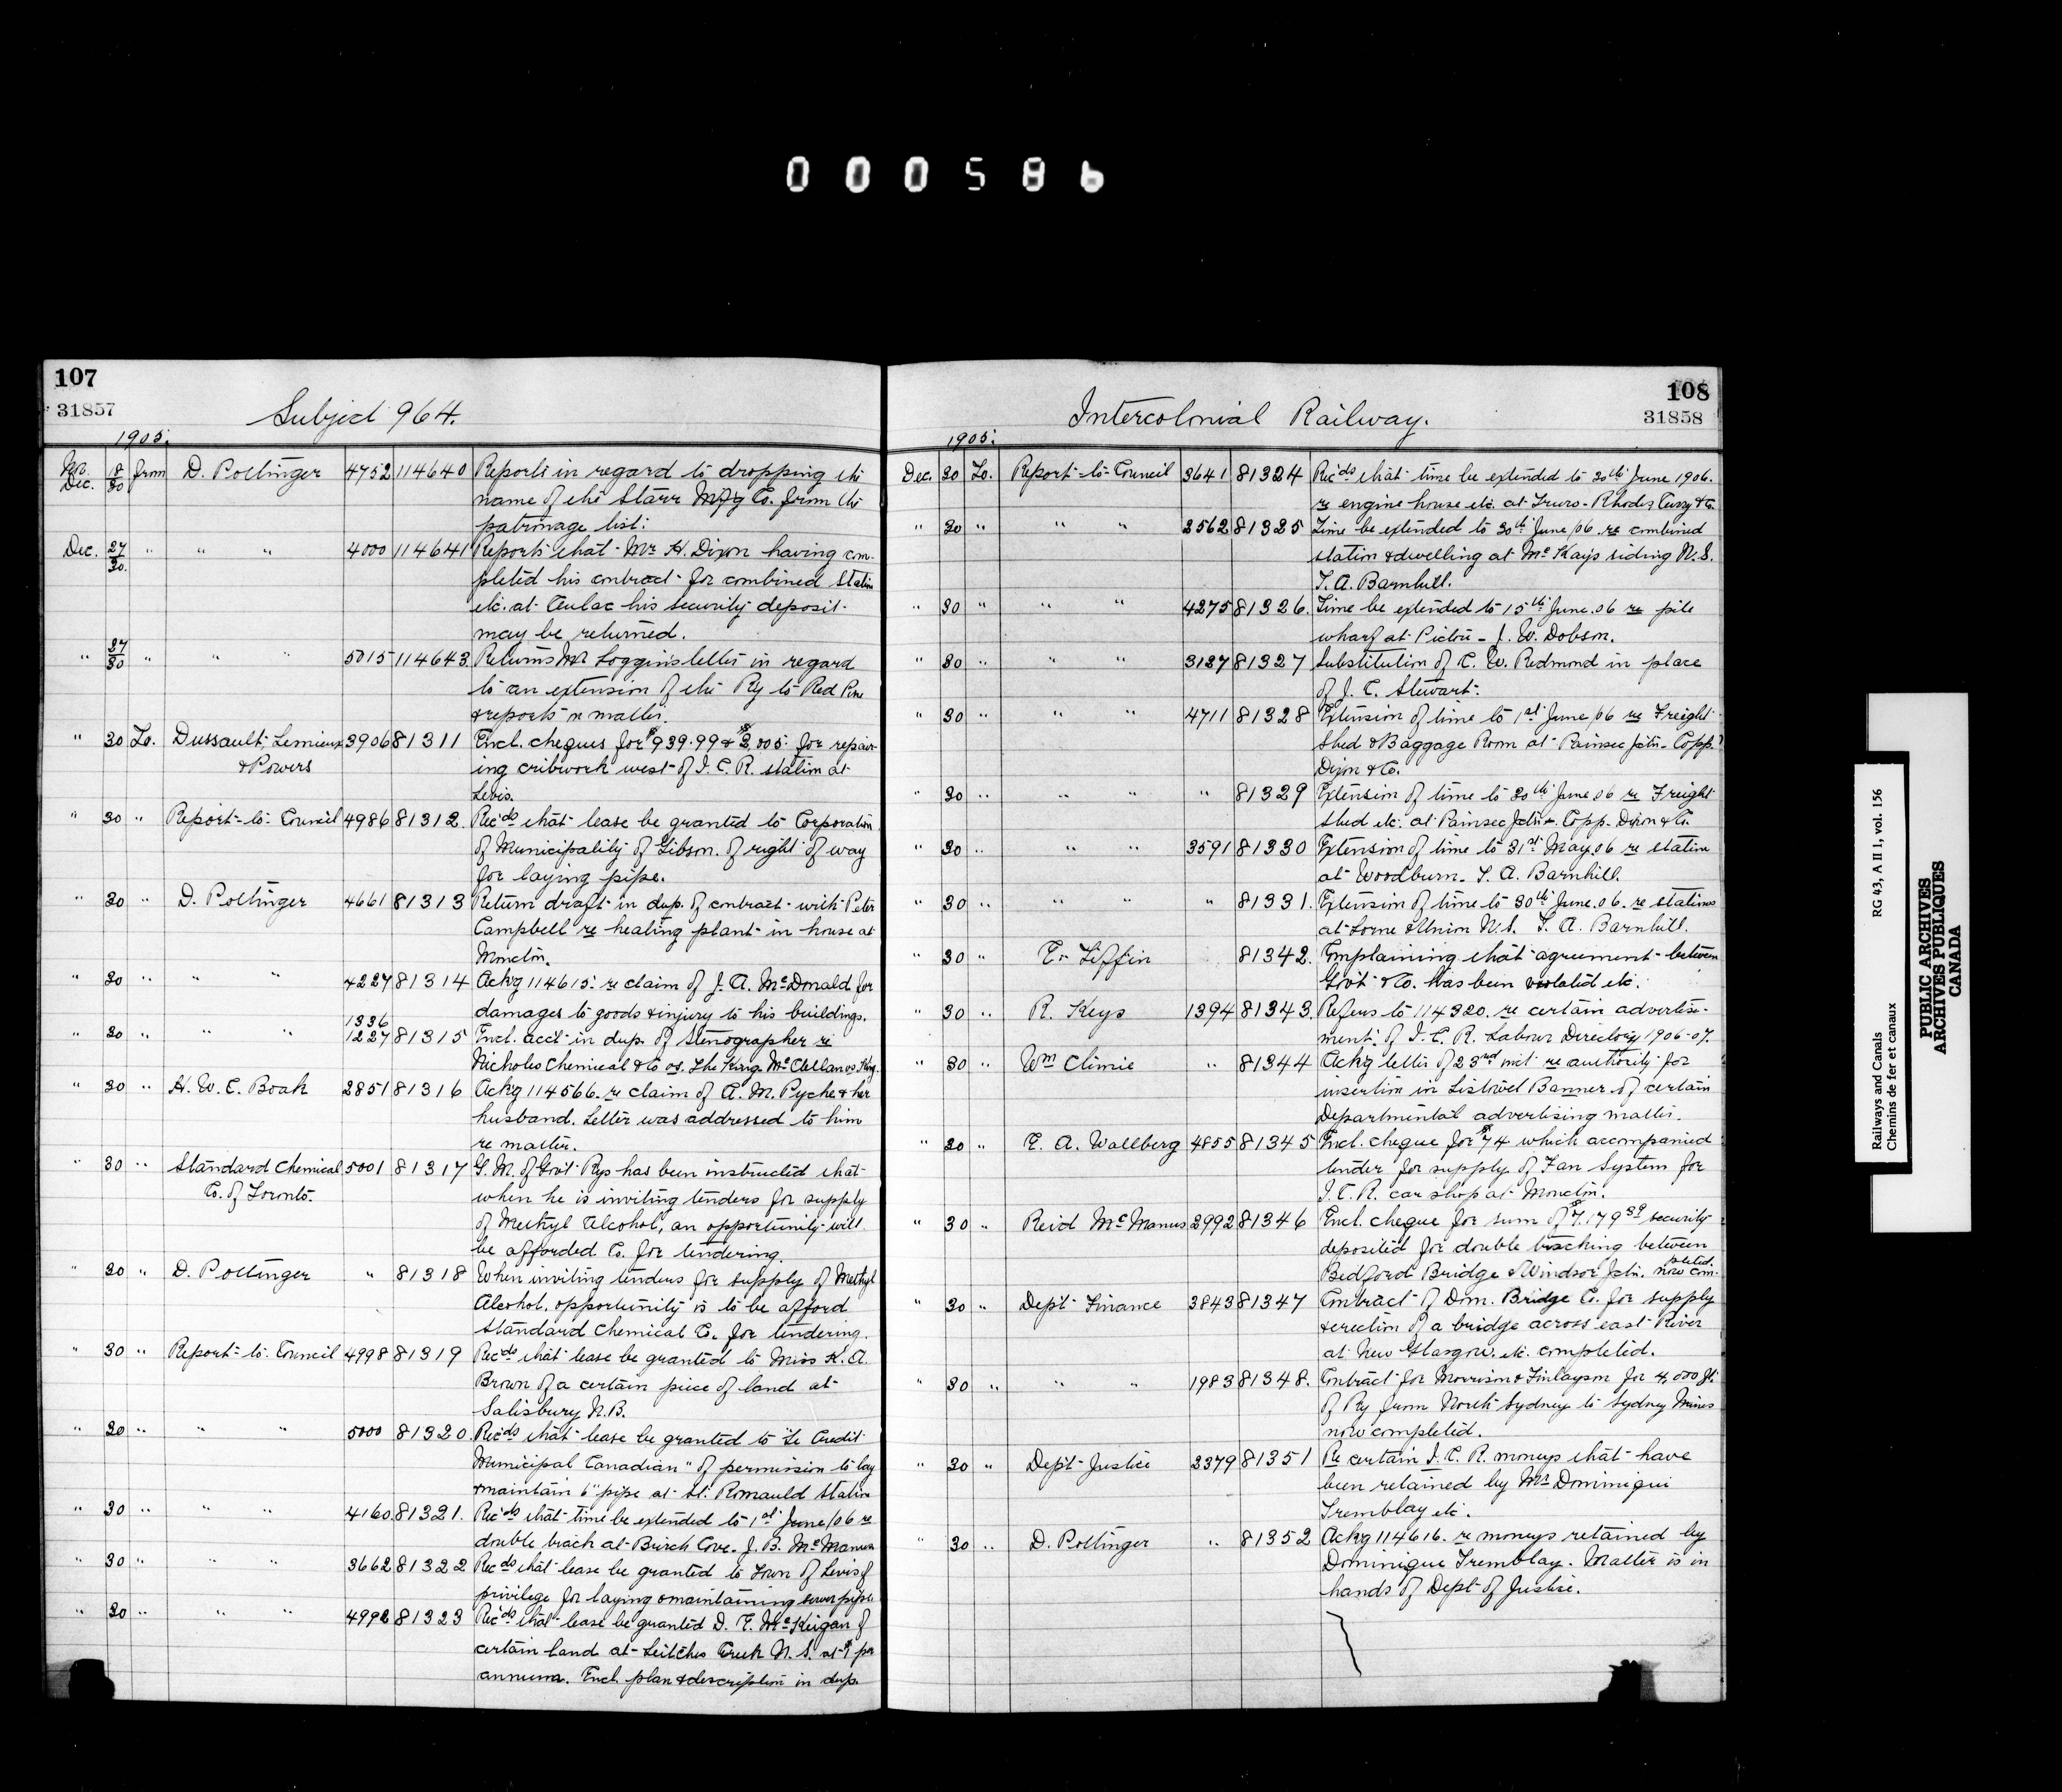 000586
107
31857
Subject 964.
1905.
Dec. 18/30 from D. Pottinger 4752 114640 Reports in regard to dropping the
name of the Starr Mfg Co. from the
patronage list.
Dec. 27/30 " " " 4000 114641 Reports that Mr H. Dixon having com-
pleted his contract for combined Station
etc. at Aulac his security deposit
may be returned.
" 27/30 " " " 5015 114643 Returns Mr Loggin's letter in regard
to an extension of the Ry to Red Pine
& reports in matter.
" 30 To. Dussault, Lemieux 3906 81311 Encl. cheques for $939.99 & $3,005 for repair-
& Powers ing cribwork west of I. C. R. station at
Levis.
" 30 " Report to Council 4986 81312 Rec'ds that lease be granted to Corporation
of Municipality of Gibson of right of way
for laying pipe.
" 30 " D. Pottinger 4661 81313 Return draft in dup. of contract with Peter
Campbell re heating plant in house at
Moncton.
" 30 " " " 4227 81314 Ackg 114615 re claim of J. A. McDonald for
damages to goods & injury to his buildings.
1336
" 30 " " " 1227 81315 Encl. acc't in dup. of Stenographer re
Nicholas Chemical & Co vs. The King. McClellan vs King.
" 30 " H. W. C. Boak 2851 81316 Ackg 114566 re claim of A. M. Pyche & her
husband. Letter was addressed to him
re matter.
" 30 " Standard Chemical 5001 81317 G. M. of Gov't Rys has been instructed that
Co. of Toronto. when he is inviting tenders for supply
of Methyl Alcohol, an opportunity will
be afforded Co. for tendering.
" 30 " D. Pottinger " 81318 When inviting tenders for supply of Methyl
Alcohol, opportunity is to be afford
Standard Chemical Co. for tendering.
" 30 " Report to Council 4998 81319 Rec'ds that lease be granted to Miss K. A.
Brown of a certain piece of land at
Salisbury N.B.
" 30 " " " 5000 81320 Rec'ds that lease be granted to "Le Credit
Municipal Canadian" of permission to lay
& maintain 6" pipe at St. Romauld Station
" 30 " " " 4160 81321. Rec'ds that time be extended to 1st June/06 re
double track at Birch Cove. J. B. McManus
" 30 " " " 3662 81322 Rec'ds that lease be granted to Town of Levis of
privilege for laying & maintaining sewer pipe
" 30 " " " 4992 81323 Rec'ds that lease be granted D. E. McKeigan of
certain land at Leitches Creek N. S. at $1 per
annum. Encl. plan & description in dup.
108
31858
Intercolonial Railway.
1905.
Dec. 30 To. Report to Council 3641 81324 Rec'ds that time be extended to 30th June 1906.
re engine house etc. at Truro - Rhodes Curry & Co.
" 30 " " " 3562 81325 Time be extended to 30th June/06 re combined
station & dwelling at McKay's siding N.S.
T. A. Barnhill.
" 30 " " " 4275 81326. Time be extended to 15th June.06 re pile
wharf at Pictou - J. W. Dobson.
" 30 " " " 3137 81327 Substitution of C. W. Redmond in place
of J. C. Stewart.
" 30 " " " 4711 81328 Extension of time to 1st June/06 re Freight
Shed & Baggage Room at Painsec Jctn - Copp.
Dixon & Co.
" 30 " " " " 81329 Extension of time to 30th June.06 re Freight
Shed etc. at Painsec Jctn. Copp. Dixon & Co.
" 30 " " " 3591 81330 Extension of time to 31st May.06 re station
at Woodburn. T. A. Barnhill.
" 30 " " " " 81331. Extension of time to 30th June.06. re stations
at Lorne & Union N.S. T. A. Barnhill.
" 30 " E. Tiffin 81342. Complaining that agreement between
Gov't & Co. has been violated etc.
" 30 " R. Keys 1394 81343. Refers to 114320. re certain advertise-
ment of I. C. R. Labour Directory 1906-07.
" 30 " Wm Climie " 81344 Ackg letter of 23rd inst re authority for
insertion in Listowel Banner of certain
Departmental advertising matter.
" 30 " E. A. Wallberg 4855 81345 Encl. cheque for $74 which accompanied
tender for supply of Fan System for
I. C. R. car shop at Moncton.
" 30 " Reid McManus 2992 81346 Encl. cheque for sum of $7.179 59 security
deposited for double tracking between
Bedford Bridge & Windsor Jctn. now com-
pleted.
" 30 " Dep't Finance 3843 81347 Contract of Dom. Bridge Co. for supply
& erection of a bridge across east River
at New Glasgow. etc. completed.
" 30 " " " 1983 81348. Contract for Morrison & Finlayson for 4,000 ft.
of Ry from North Sydney to Sydney Mines
now completed.
" 30 " Dep't Justice 3379 81351 Re certain I. C. R. moneys that have
been retained by Mr Dominique
Tremblay etc.
" 30 " D. Pottinger " 81352 Ackg 114616. re moneys retained by
Dominique Tremblay. Matter is in
hands of Dept of Justice.
Railways and Canals RG 43, A II 1, vol. 156
Chemins de fer et canaux
PUBLIC ARCHIVES
ARCHIVES PUBLIQUES
CANADA